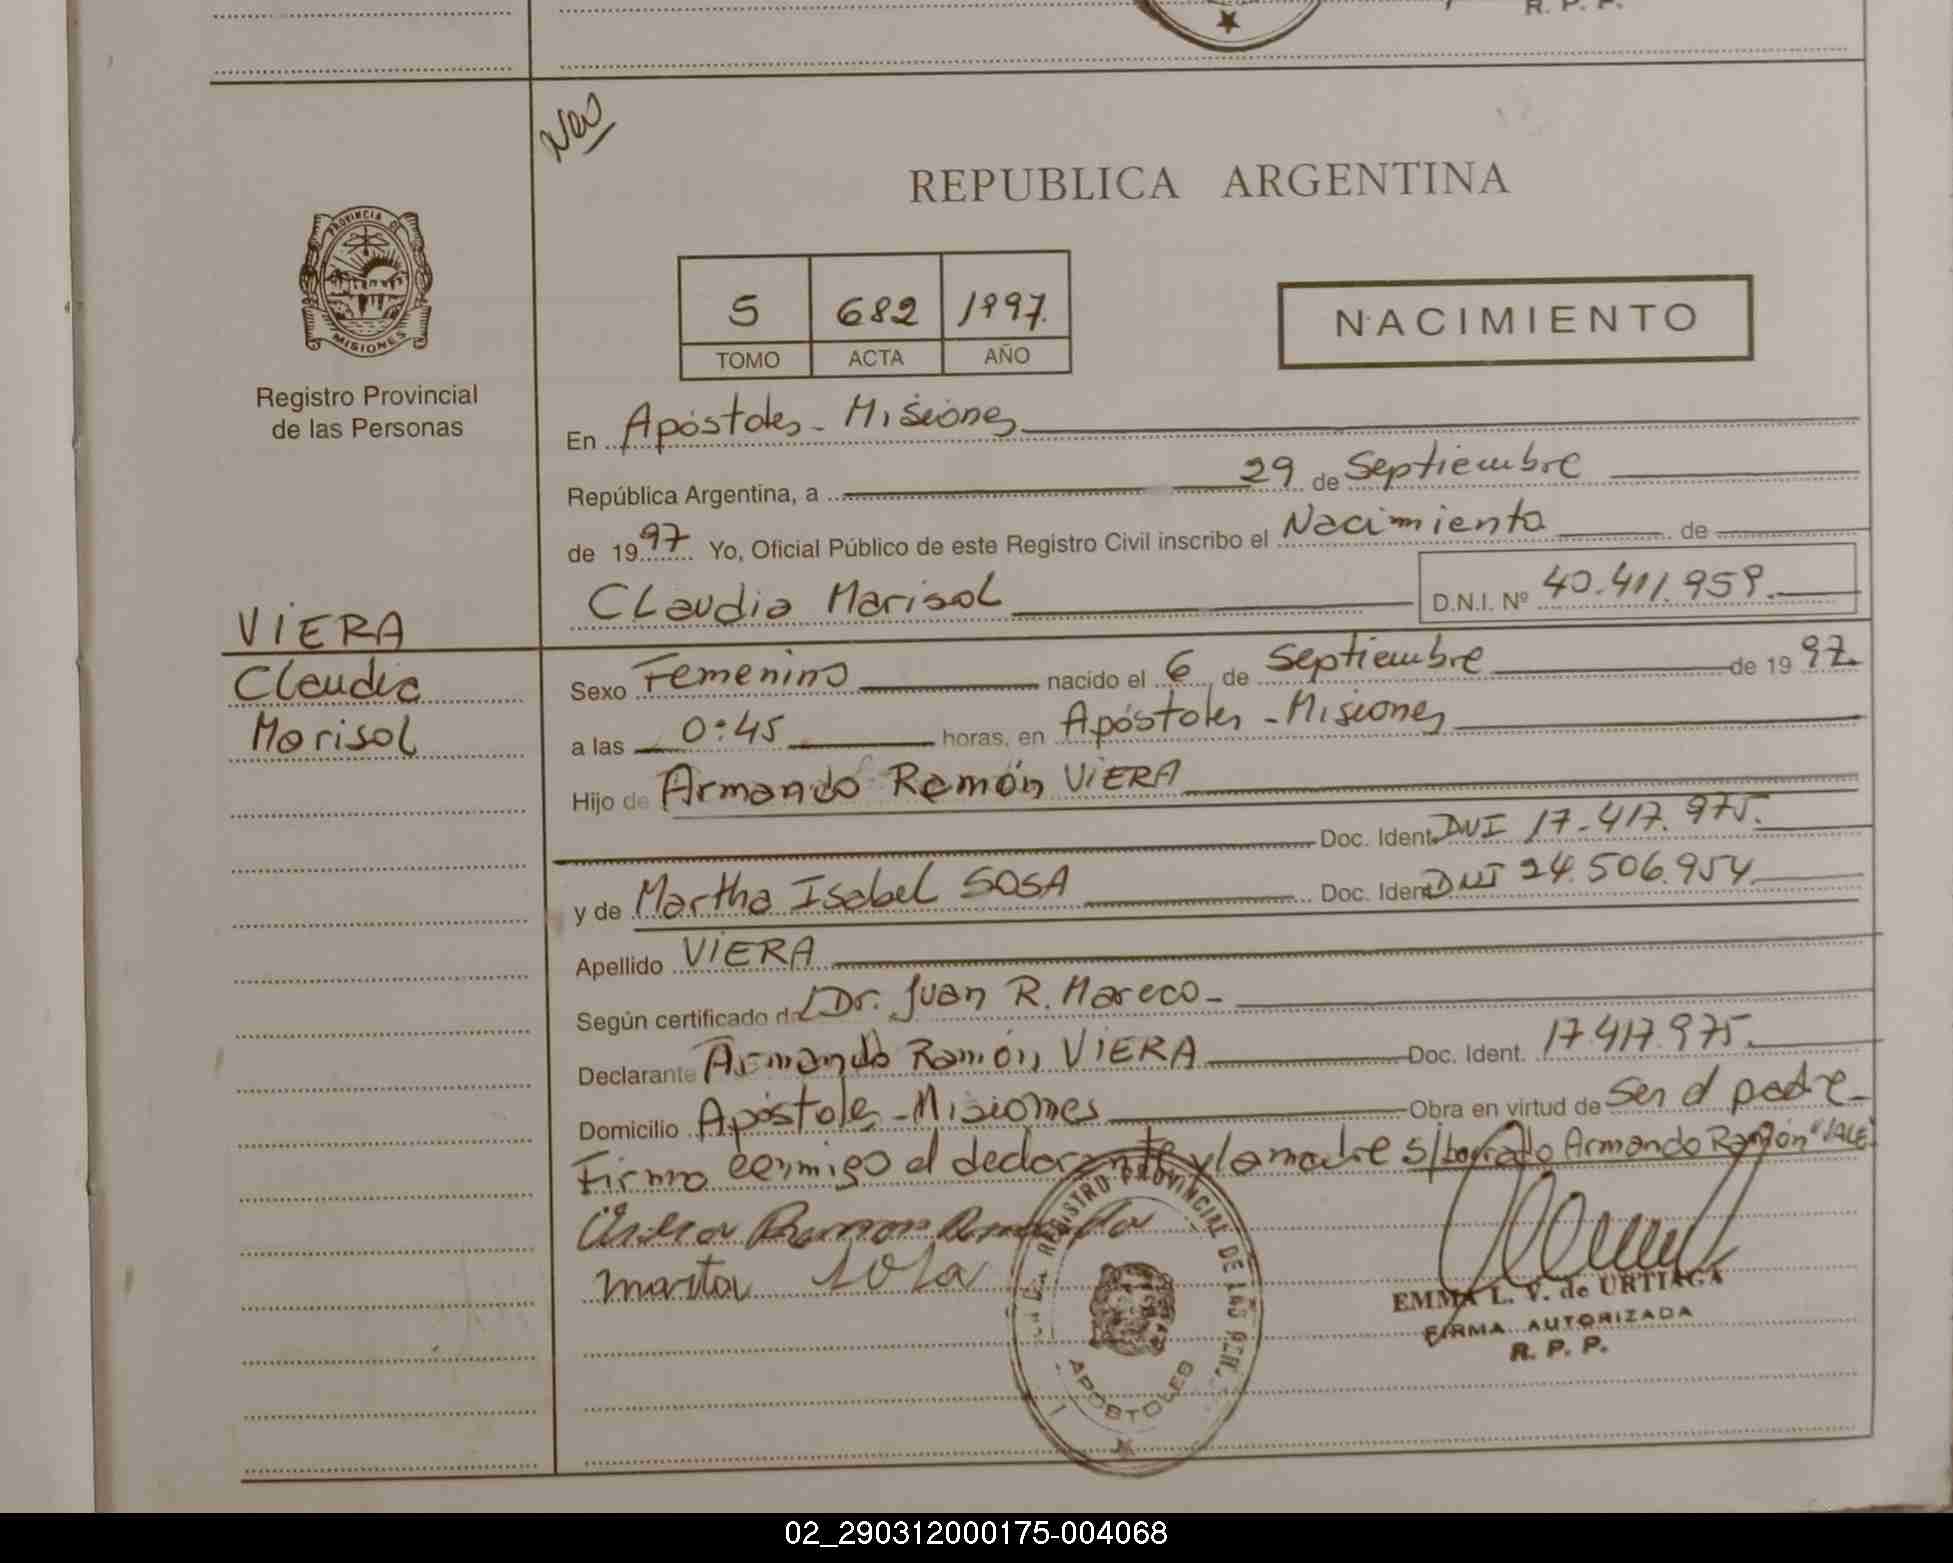 R. P. P.
Nac
REPUBLICA ARGENTINA
PROVINCIA DE
MISIONES
Registro Provincial
de las Personas
5 682 1997.
TOMO ACTA AÑO
NACIMIENTO
En Apóstoles - Misiones
República Argentina, a 29 de Septiembre
de 1997 Yo, Oficial Público de este Registro Civil inscribo el Nacimiento de
Claudia Marisol D.N.I. Nº 40.411.959.
VIERA
Claudia
Marisol
Sexo Femenino nacido el 6 de Septiembre de 1997.
a las 0:45 horas, en Apóstoles - Misiones
Hijo de Armando Ramón VIERA
Doc. Ident. DNI 17.417.975.
y de Martha Isabel SOSA Doc. Ident. DNI 24.506.954
Apellido VIERA
Según certificado de Dr. Juan R. Mareco -
Declarante Armando Ramón VIERA Doc. Ident. 17.417.975.
Domicilio Apóstoles - Misiones Obra en virtud de Ser el padre -
Firma conmigo el declarante y la madre s/borrado Armando Ramón "VALE"
Viera Ramon Armando
marta sosa
REGISTRO PROVINCIAL DE LAS PER.
APOSTOLES
EMMA L. V. de URTIAGA
FIRMA AUTORIZADA
R. P. P.
02_290312000175-004068